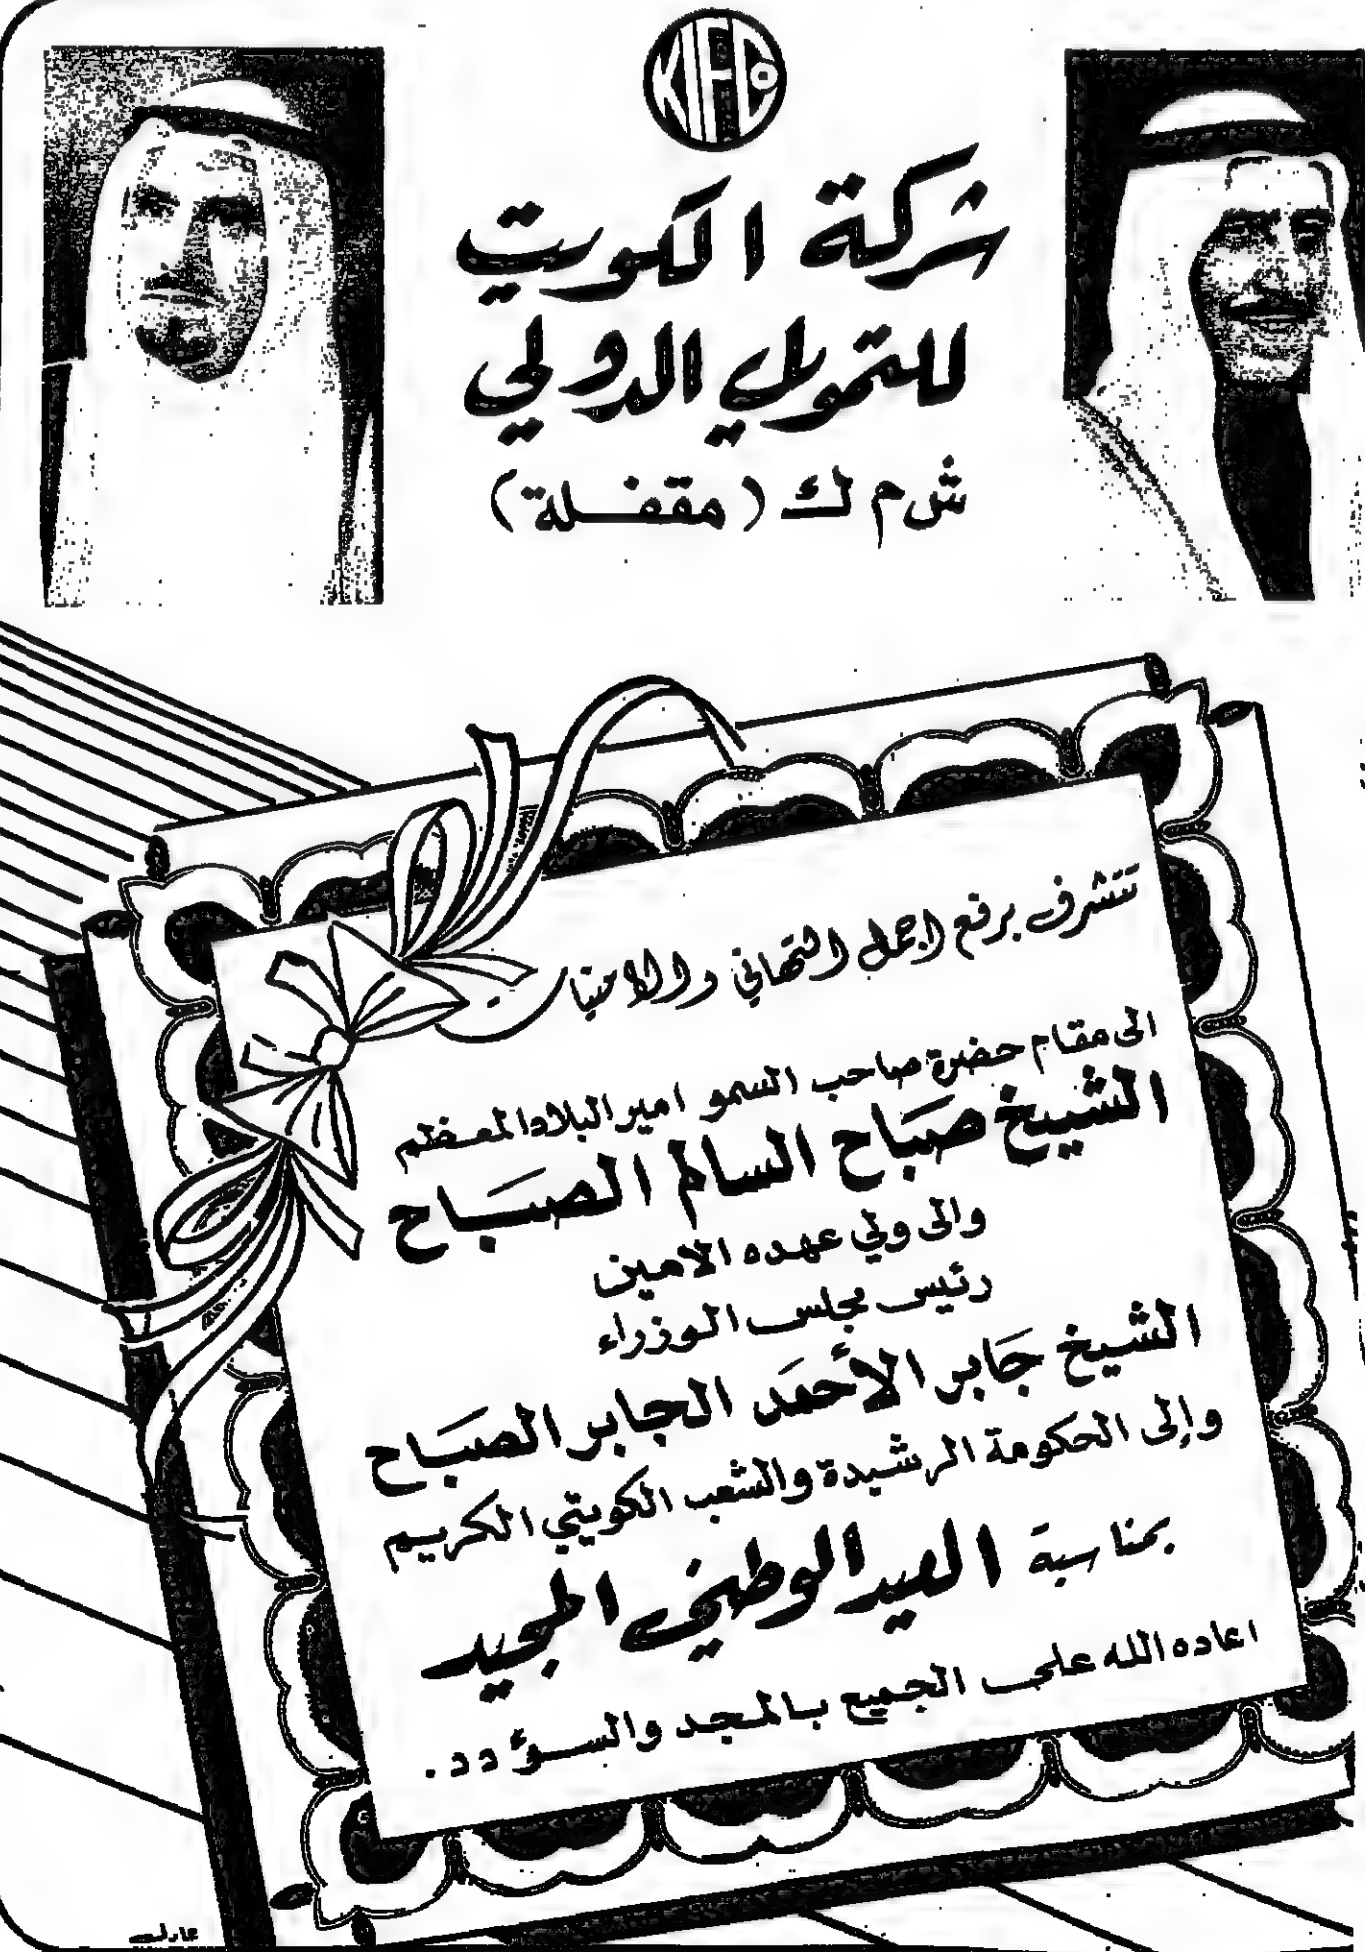 KIFCo
شركة الكويت
للتمويل الدولي
ش م ك (مقفلة)
تتشرف برفع اجمل التهاني والامنيات
الى مقام حضرة صاحب السمو امير البلاد المعظم
الشيخ صباح السالم الصباح
والى ولي عهده الامين
رئيس مجلس الوزراء
الشيخ جابر الأحمد الجابر الصباح
وإلى الحكومة الرشيدة والشعب الكويتي الكريم
بمناسبة العيد الوطني المجيد
اعاده الله على الجميع بالمجد والسؤدد.